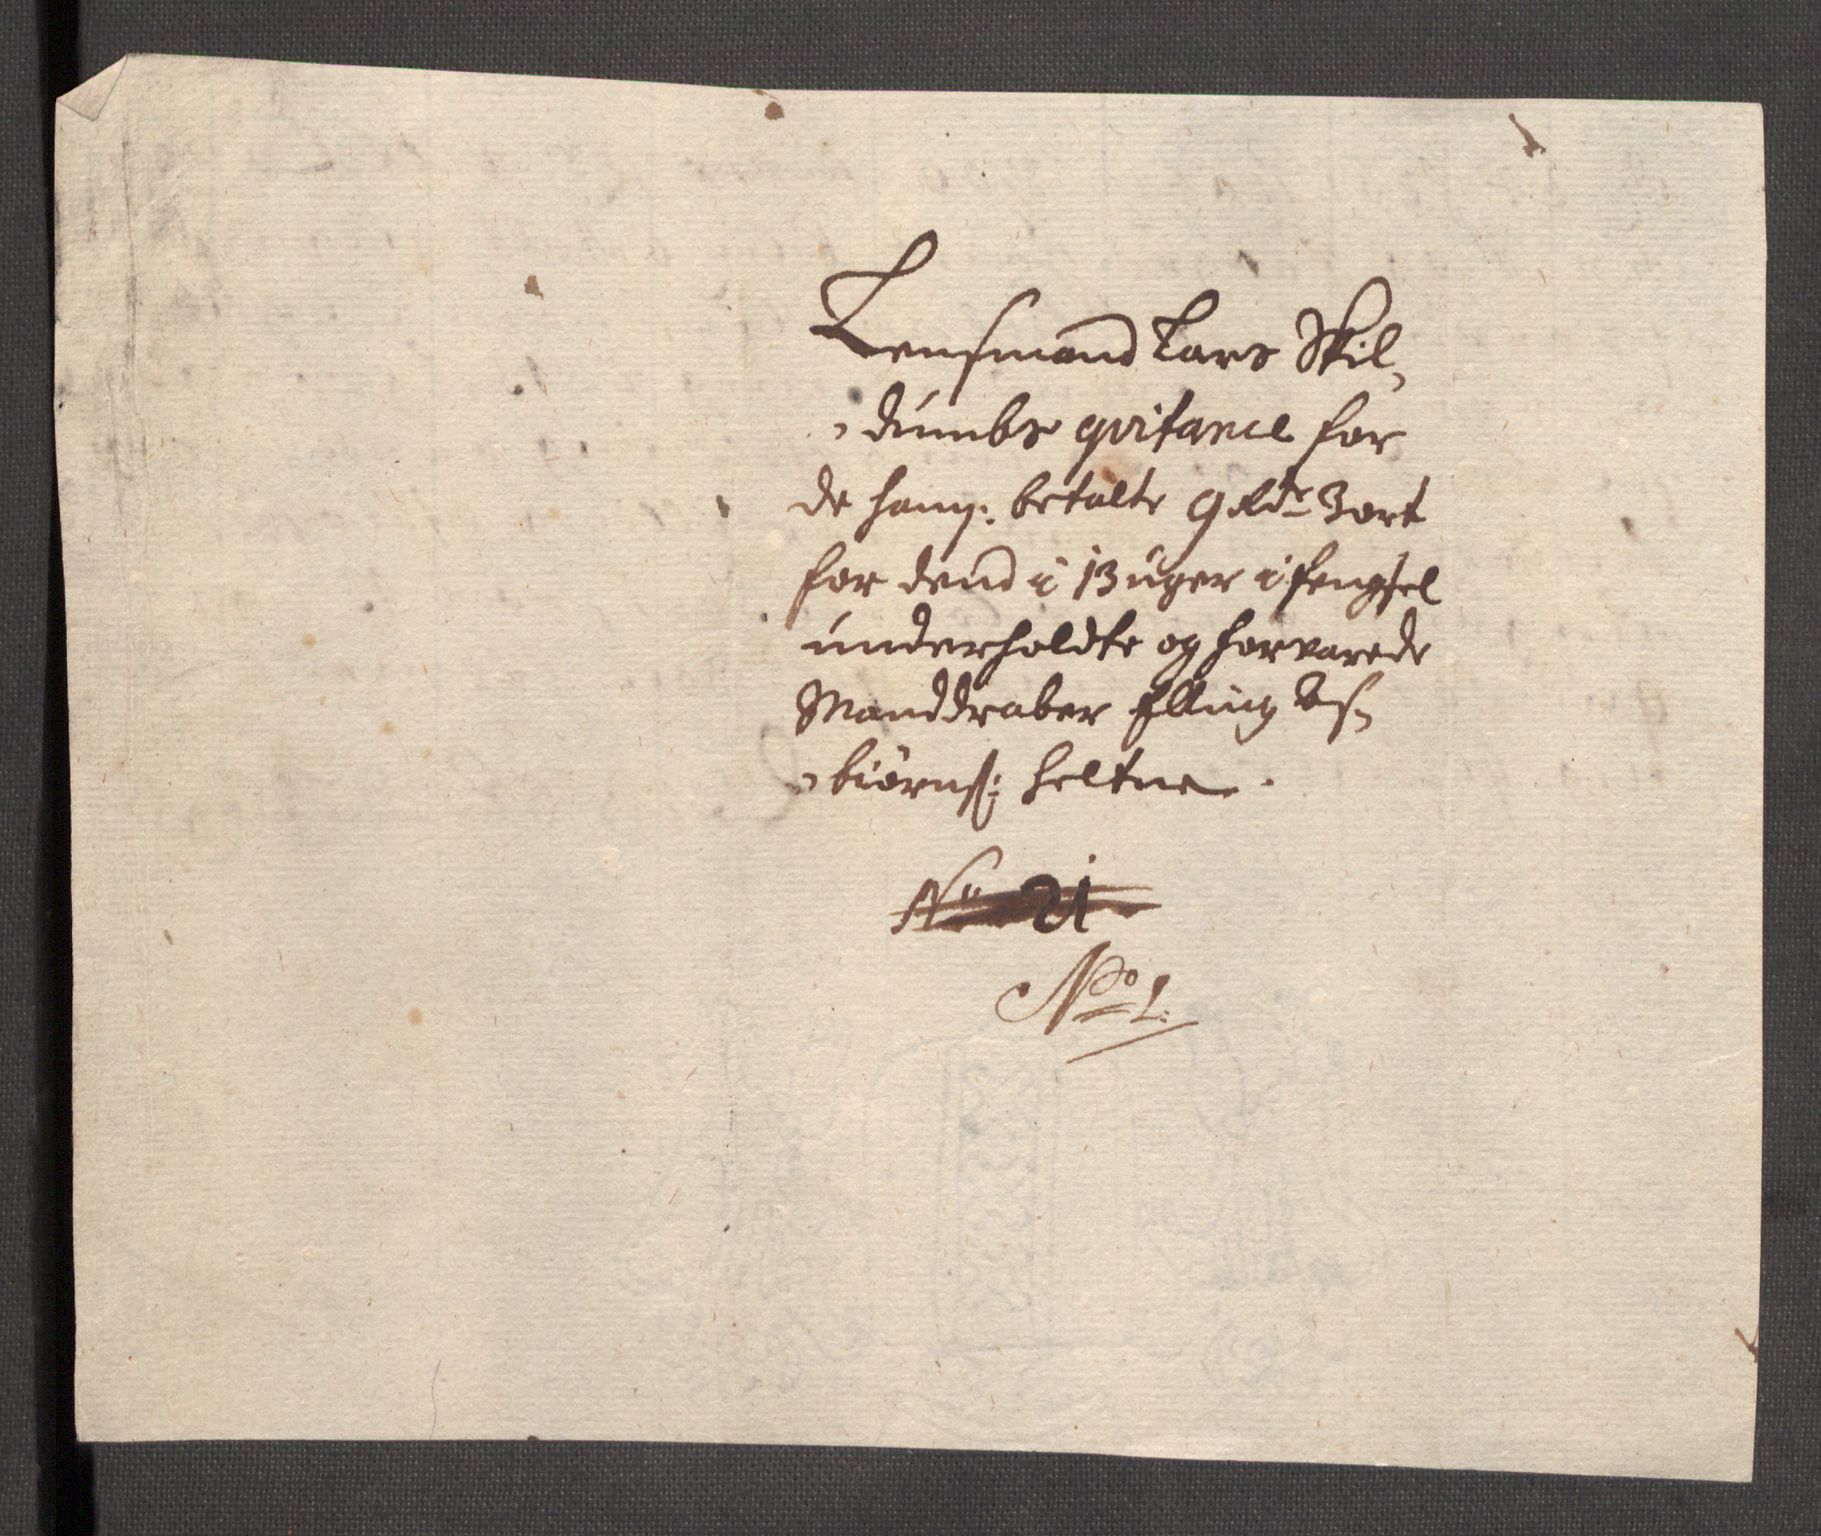 Lensmand Lars Skil,
, dumbs qvitance for
de ham: betalte 9 Rdr 3 ort
for dend i 13 uger i fengsel
underholdte og forvarede
Manddraber Elling As,
, biørns: heltne.
No 21
No 1: